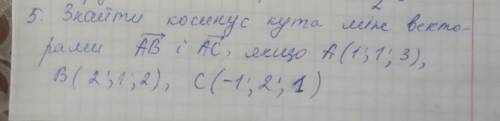 5. Знайти косинус кута між векто-
рами AB і AC, якщо A(1; 1; 3),
B(2; 1; 2), C(-1; 2; 1)